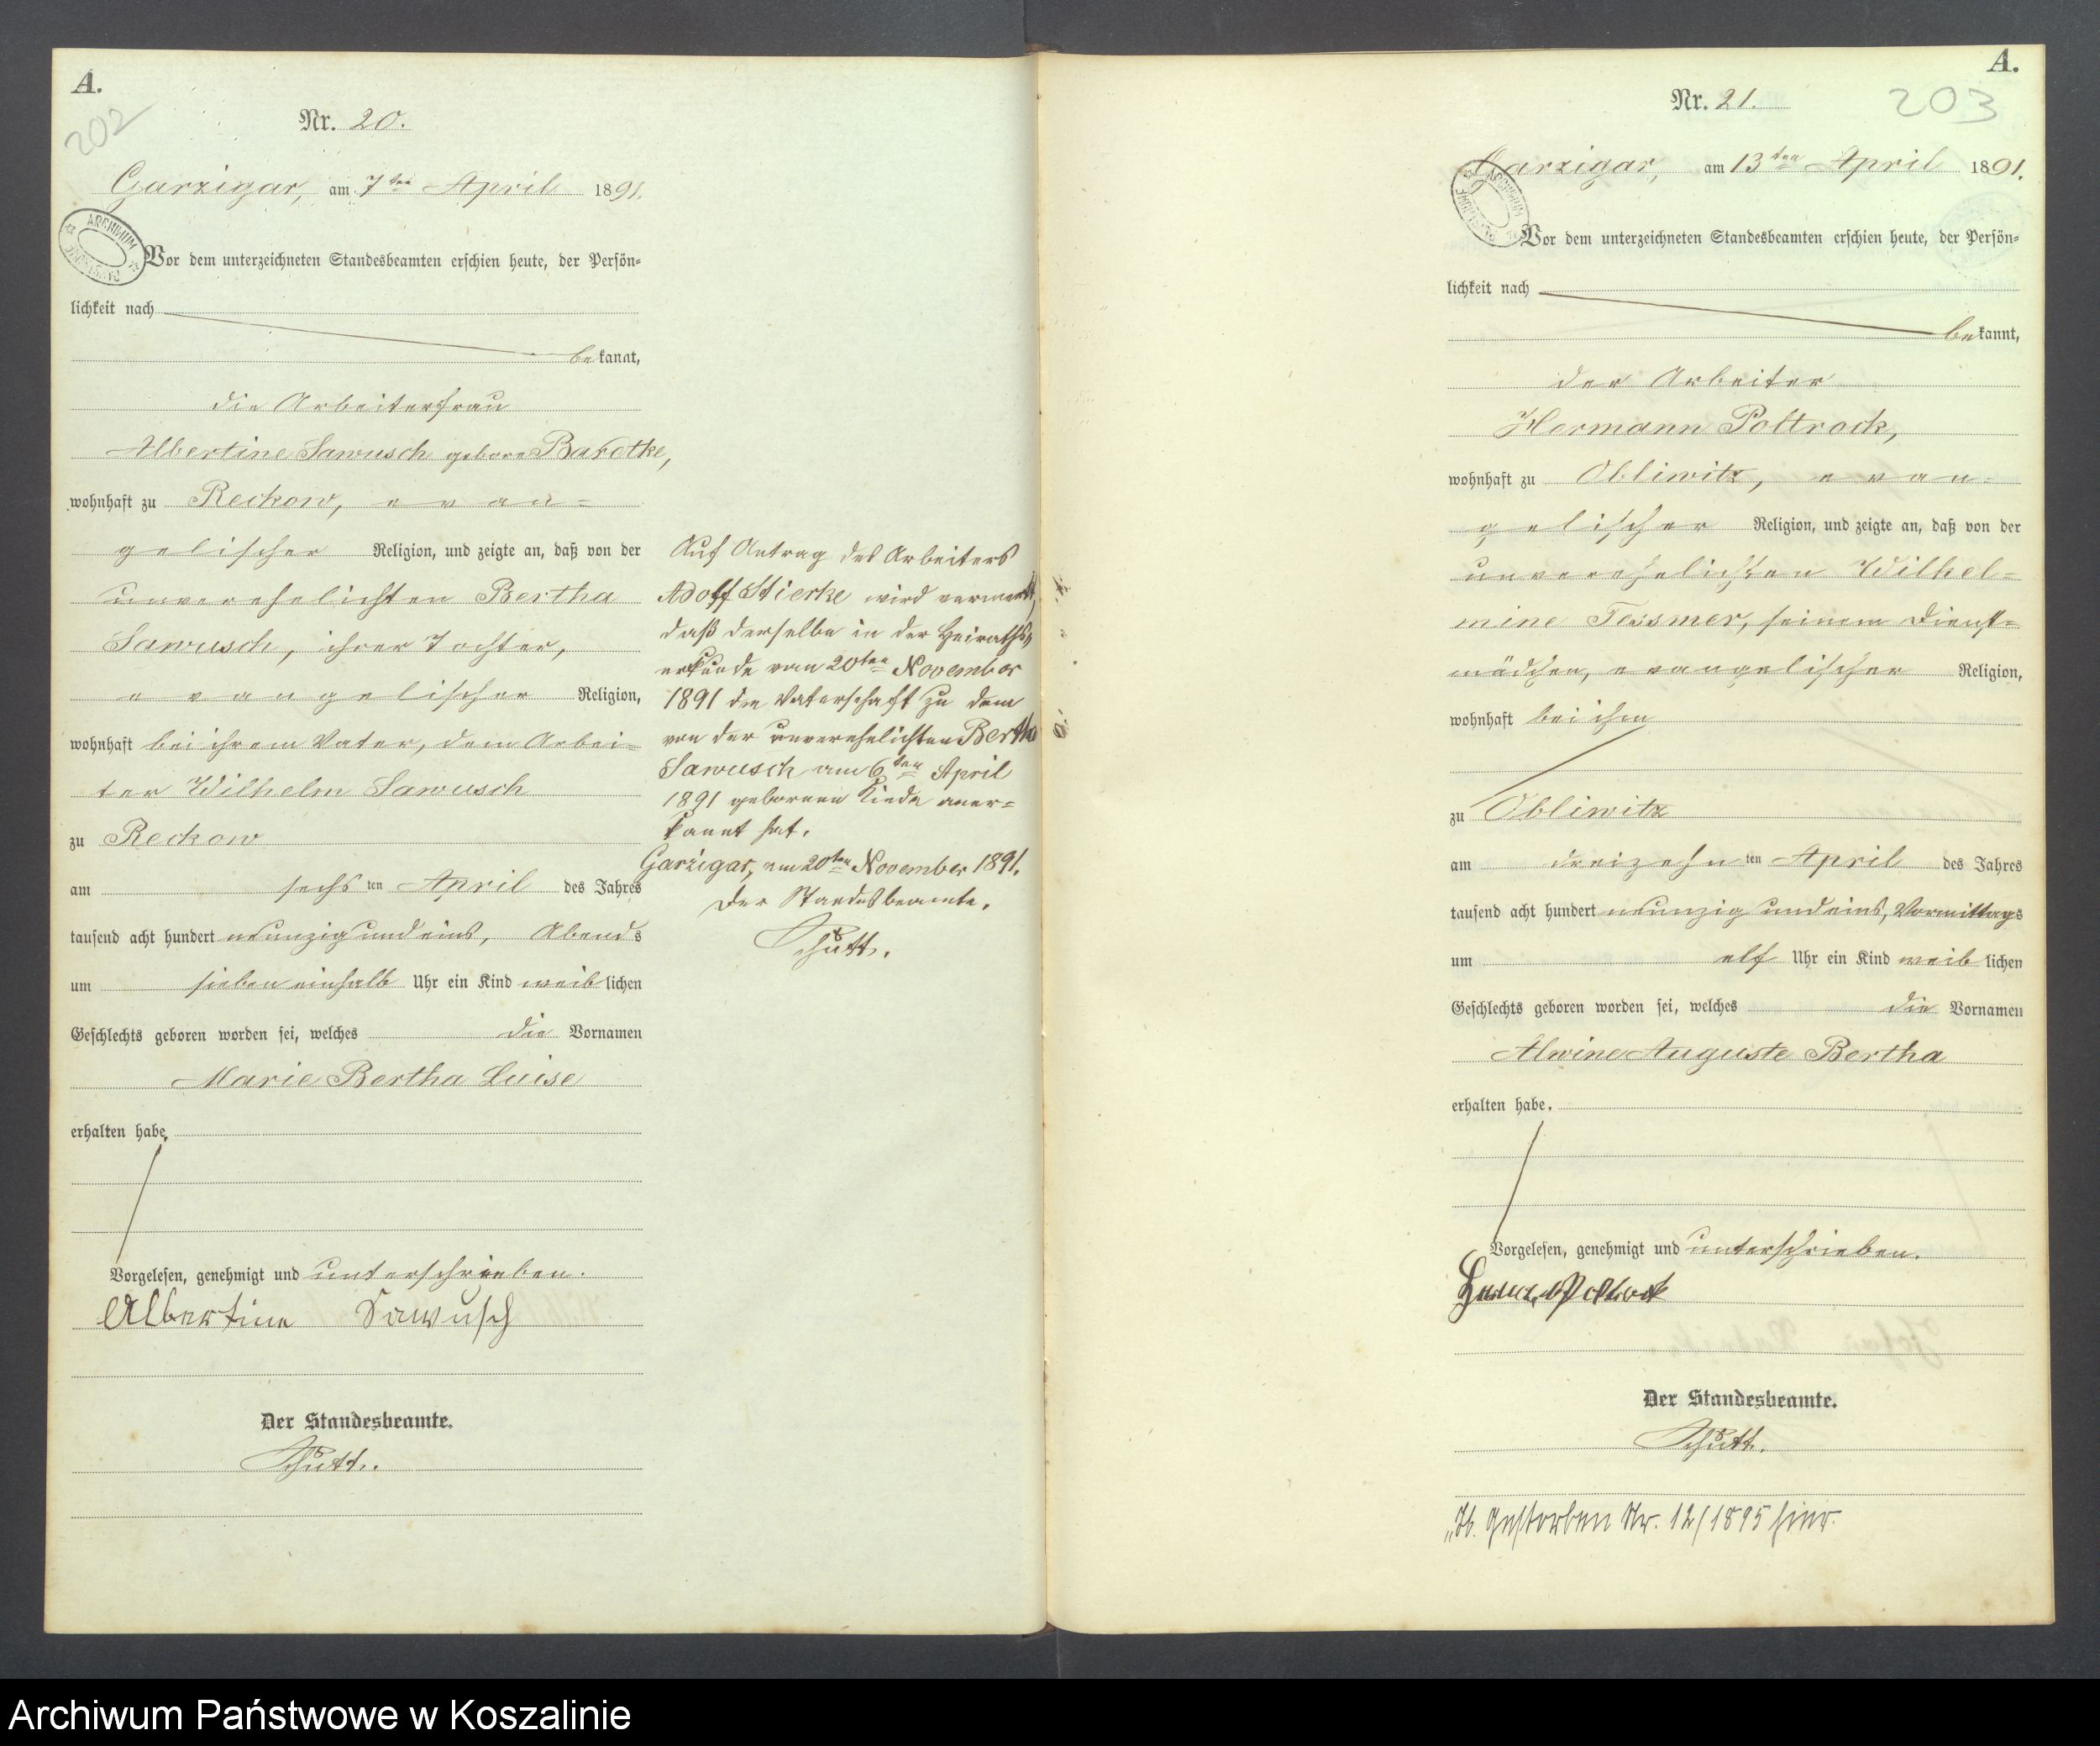 A.
202
Nr. 20.
Garzigar, am 7ten April 1891.
ARCHIWUM
Vor dem unterzeichneten Standesbeamten erschien heute, der Persön=
lichkeit nach
bekannt,
die Arbeiterfrau
Albertine Sawusch geborne
wohnhaft zu Reckow, evan=
gelischer Religion, und zeigte an, daß von der
unverehelichten Bertha
Sawusch, ihrer Tochter,
evangelischer Religion,
wohnhaft bei ihrem Vater, dem Arbei=
ter Wilhelm Sawusch
zu Reckow
am sechsten April des Jahres
tausend acht hundert neunzig und eins, Abends
um sieben einhalb Uhr ein Kind weiblichen
Geschlechts geboren worden sei, welches die Vornamen
Marie Bertha Luise
erhalten habe.
Vorgelesen, genehmigt und unterschrieben.
Albertine Sawusch
Der Standesbeamte.
Schütt.
Auf Antrag des Arbeiters
Adolf Stierke wird vermerkt,
daß derselbe in der Heiraths=
urkunde vom 20ten November
1891 die Vaterschaft zu dem
von der unverehelichten Bertha
Sawusch am 6ten April
1891 geborenen Kinde aner=
kannt hat.
Garzigar, am 20ten November 1891.
Der Standesbeamte.
Schütt.
A.
203
Nr. 21.
Garzigar, am 13ten April 1891.
ARCHIWUM
Vor dem unterzeichneten Standesbeamten erschien heute, der Persön=
lichkeit nach
bekannt,
der Arbeiter
Hermann Poltrock,
wohnhaft zu Obliwitz, evan=
gelischer Religion, und zeigte an, daß von der
unverehelichten Wilhel=
mine Tessmer, seinem Dienst=
mädchen, evangelischer Religion,
wohnhaft bei ihm
zu Obliwitz
am dreizehnten April des Jahres
tausend acht hundert neunzig und eins, Vormittags
um elf Uhr ein Kind weiblichen
Geschlechts geboren worden sei, welches die Vornamen
Alwine Auguste Bertha
erhalten habe.
Vorgelesen, genehmigt und unterschrieben.
Poltrock
Der Standesbeamte.
Schütt.
gestorben Nr. 12/1895 hier.
Archiwum Państwowe w Koszalinie